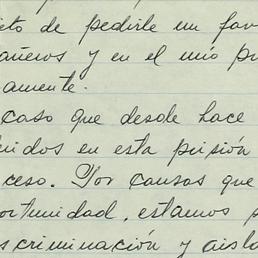 eto de pedirle un fav
añeros y en el mío p
amente.
caso que desde hace
nidos en esta prisión
ceso. Por causas que
ortunidad, estamos
scriminación y aisla